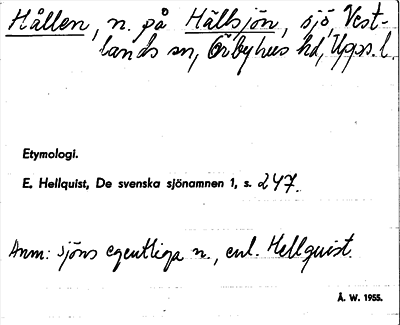 Hållen, n. på Hällsjön, sjö, Vest-
lands sn, Örbyhus hd, Upps. l.
Etymologi.
E. Hellquist, De svenska sjönamnen 1, s. 247.
Anm: sjöns egentliga n., enl. Hellquist.
Å. W. 1955.